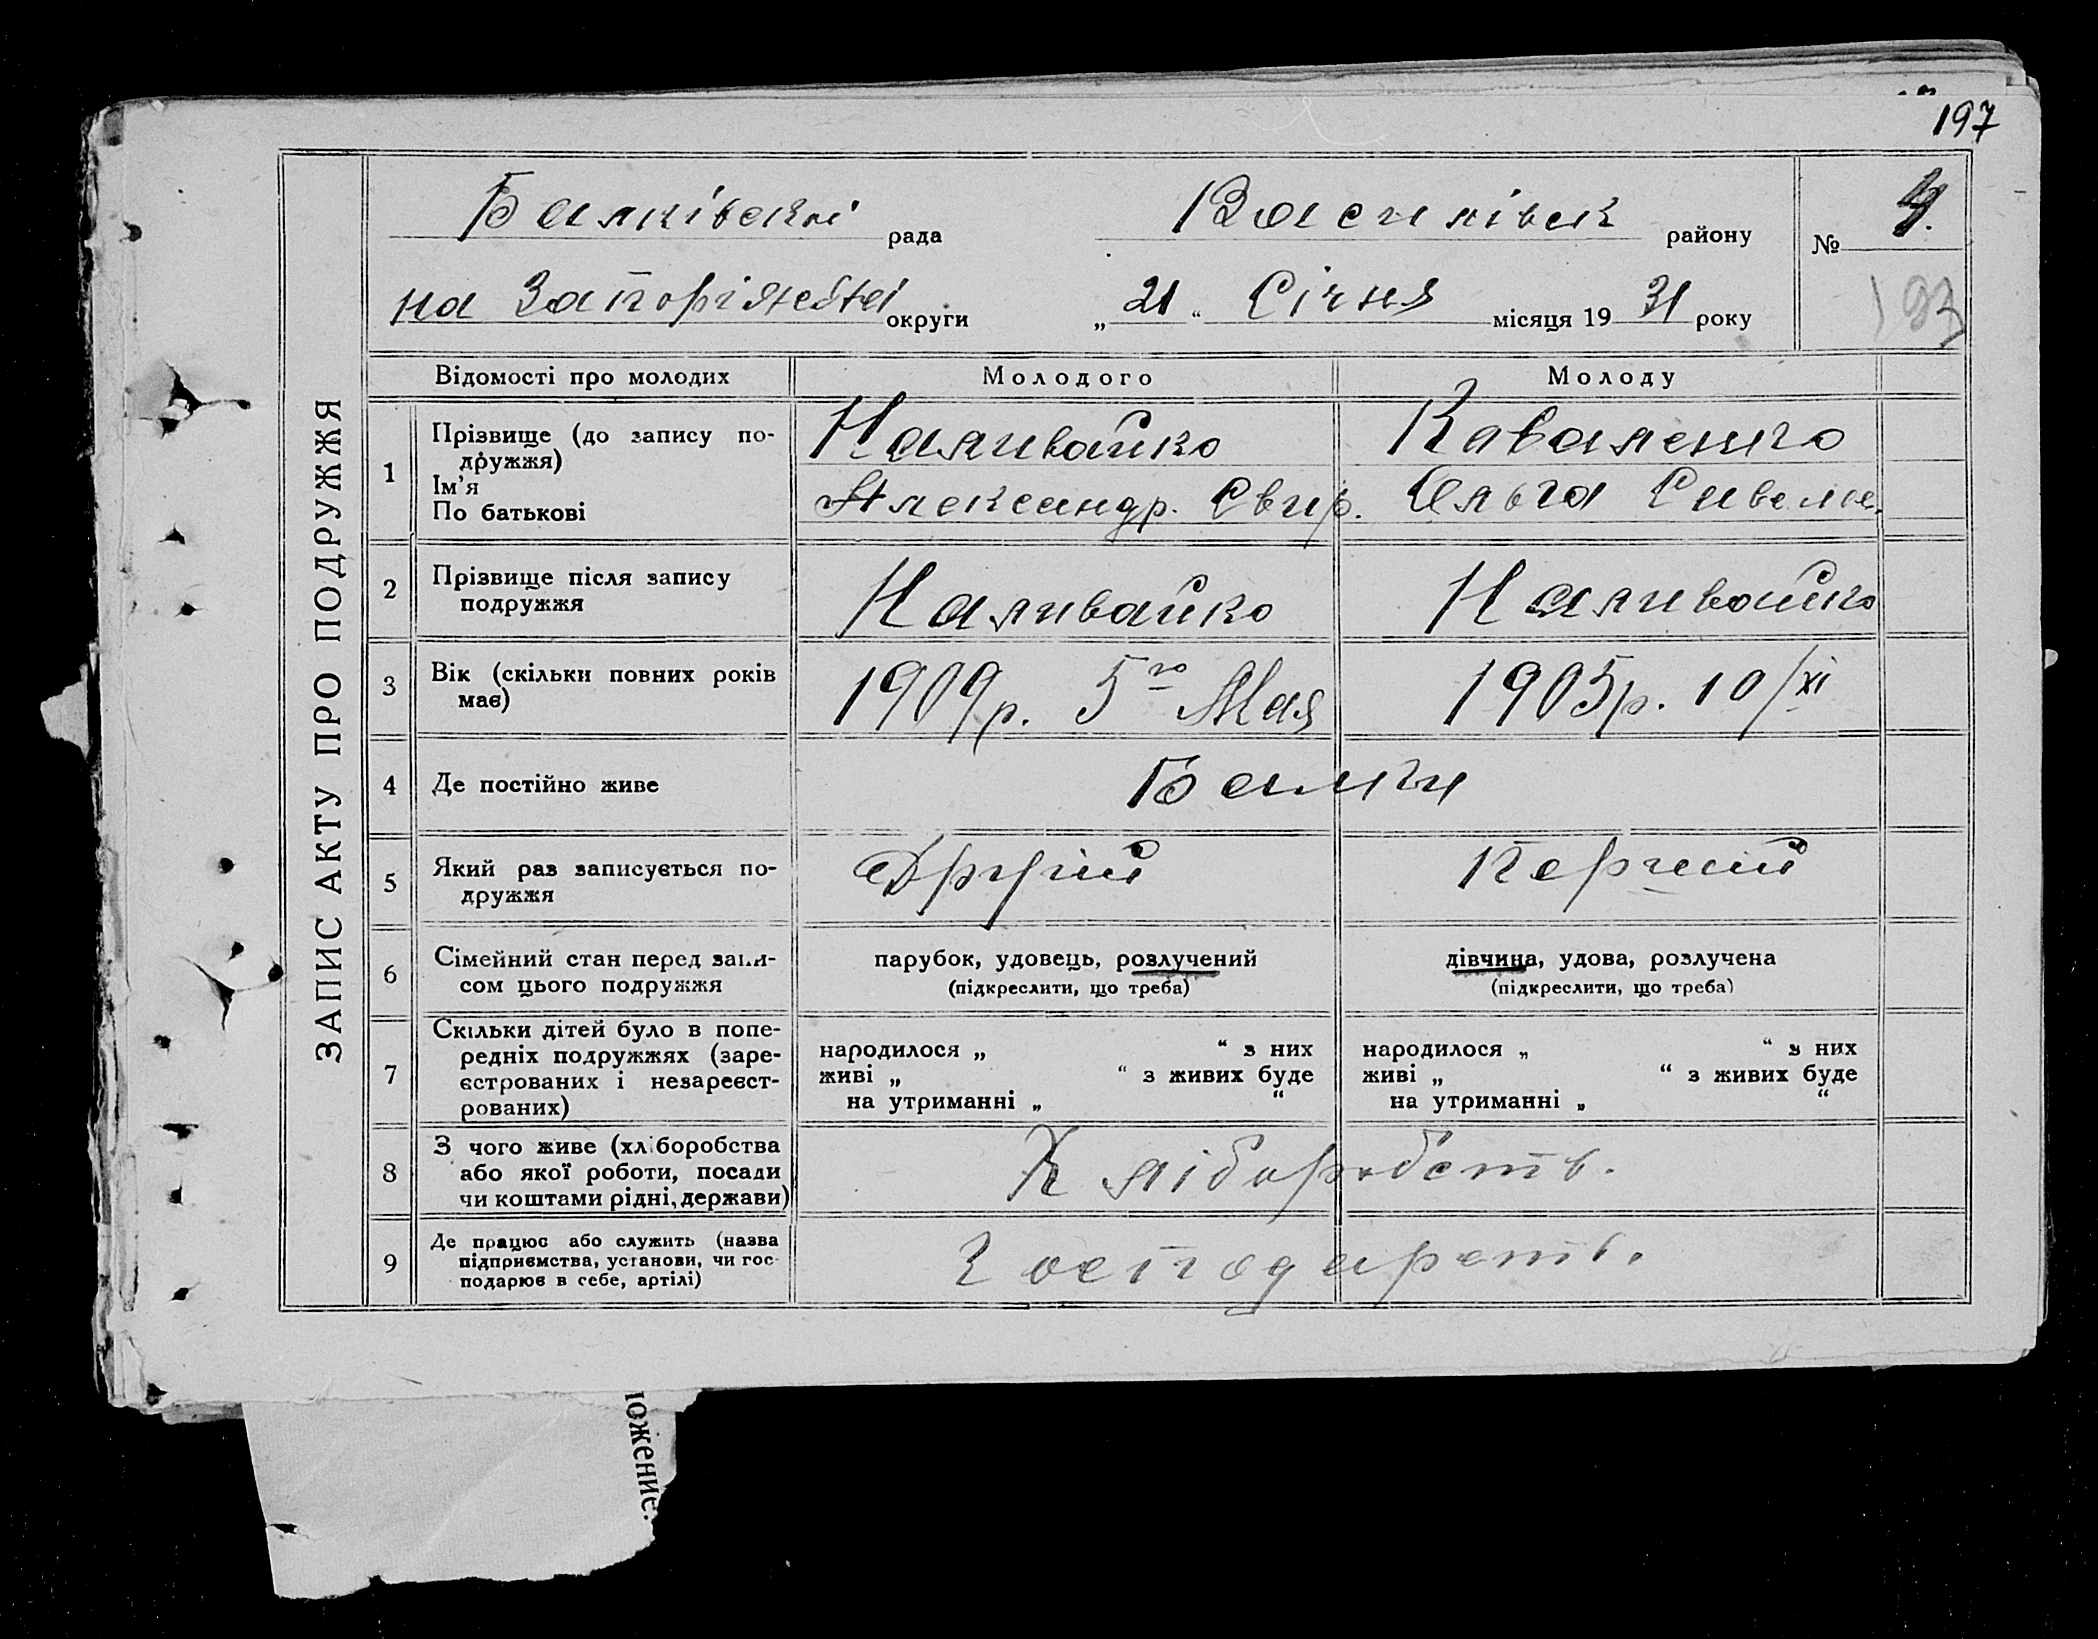 197
Балківскої рада Василівск району № 4.
на Запоріжчтні округи „21“ Січня місяця 1931 року
193
ЗАПИС АКТУ ПРО ПОДРУЖЖЯ
Відомості про молодих Молодого Молоду
1 Прізвище (до запису по-
дружжя)
Ім'я
По батькові
Наливайко
Александр. Свир.
Каваленко
Ольга Савель.
2 Прізвище після запису
подружжя
Наливайко Наливайко
3 Вік (скільки повних років
має)
1909р. 5го Мая 1905р. 10/XI
4 Де постійно живе Балки
5 Який раз записується по-
дружжя
Другий Перший
6 Сімейний стан перед запи-
сом цього подружжя
парубок, удовець, розлучений
(підкреслити, що треба)
дівчина, удова, розлучена
(підкреслити, що треба)
7 Скільки дітей було в попе-
редніх подружжях (заре-
єстрованих і незареєст-
рованих)
народилося „ “ з них
живі „ “ з живих буде
на утриманні „ “
народилося „ “ з них
живі „ “ з живих буде
на утриманні „ “
8 З чого живе (хліборобства
або якої роботи, посади
чи коштами рідні, держави)
Хліборобств.
9 Де працює або служить (назва
підприємства, установи, чи гос-
подарює в себе, артілі)
Господарств.
ложение.